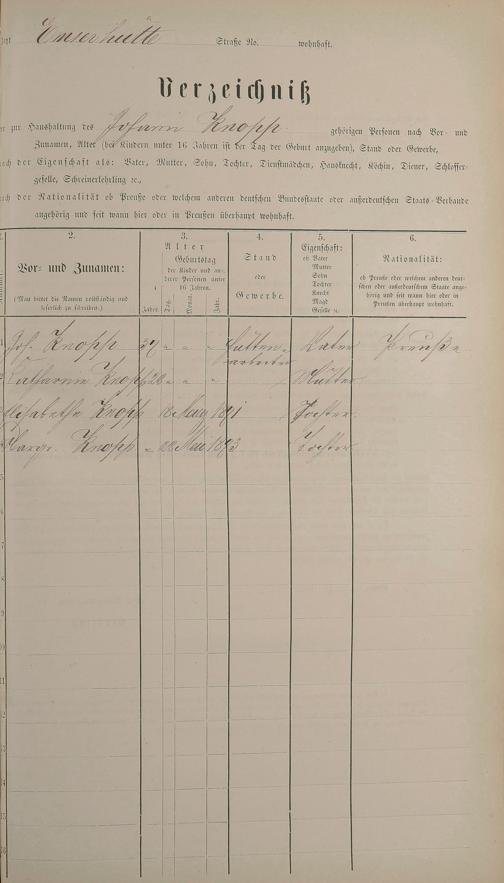 Emserhütte Straße No. wohnhaft.
Verzeichniß
zur Haushaltung des Johann Knopp gehörigen Personen nach Vor- und
Zunamen, Alter (bei Kindern unter 16 Jahren ist der Tag der Geburt anzugeben), Stand oder Gewerbe,
nach der Eigenschaft als: Vater, Mutter, Sohn, Tochter, Dienstmädchen, Hausknecht, Köchin, Diener, Schlosser-
geselle, Schreinerlehrling ꝛc.,
nach der Nationalität ob Preuße oder welchem anderen deutschen Bundesstaate oder außerdeutschen Staats-Verbande
angehörig und seit wann hier oder in Preußen überhaupt wohnhaft.
2. 3. 4. 5. 6.
Vor- und Zunamen:
(Man bittet die Namen vollständig und
leserlich zu schreiben.)
Alter
Geburtstag
der Kinder und an-
derer Personen unter
16 Jahren.
Jahre Tag. Monat. Jahr.
Stand
oder
Gewerbe.
Eigenschaft:
ob Vater
Mutter
Sohn
Tochter
Knecht
Magd
Geselle ꝛc.
Nationalität:
ob Preuße oder welchem anderen deut-
schen oder außerdeutschen Staate ange-
hörig und seit wann hier oder in
Preußen überhaupt wohnhaft.
1 Joh. Knopp 37 " " " Hütten- Vater Preuße
arbeiter
2 Catharine Knopp 28 " " Mutter
Elisabethe Knopp 18 1871 Tochter
Margr. Knopp " 28 Mai 1873 Tochter